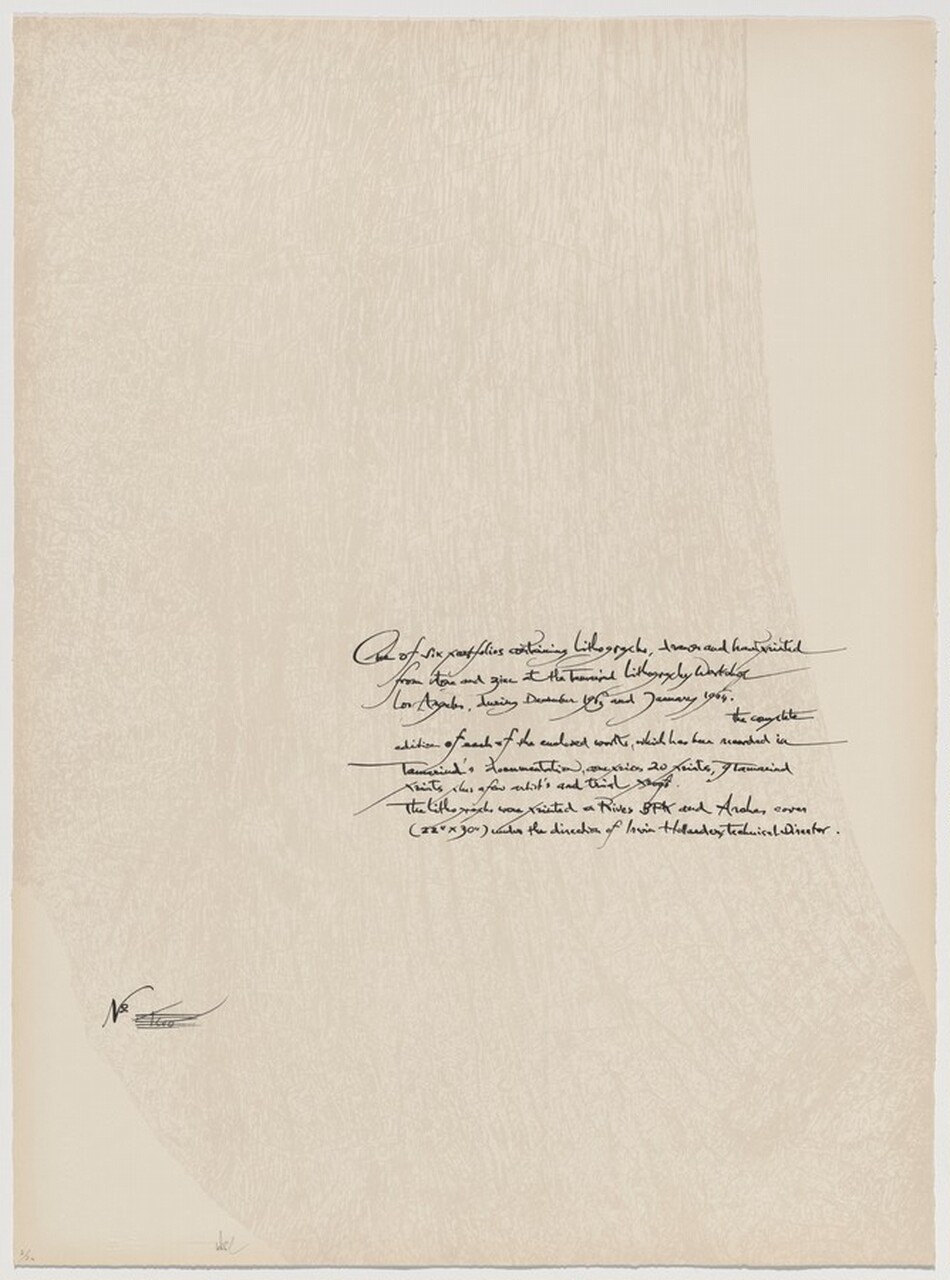 One of six portfolios containing lithographs, drawn and handprinted
from stone and zinc at the Tamarind Lithography Workshop
Los Angeles, during December 1963 and January 1964.
the complete
edition of each of the enclosed works, which has been recorded in
Tamarind's documentation, comprises 20 prints, 9 Tamarind
prints plus a few artist's and trial proofs.
The lithographs were printed on Rives BFK and Arches cover
(22" x 30") under the direction of Irwin Hollander, Technical Director.
No two